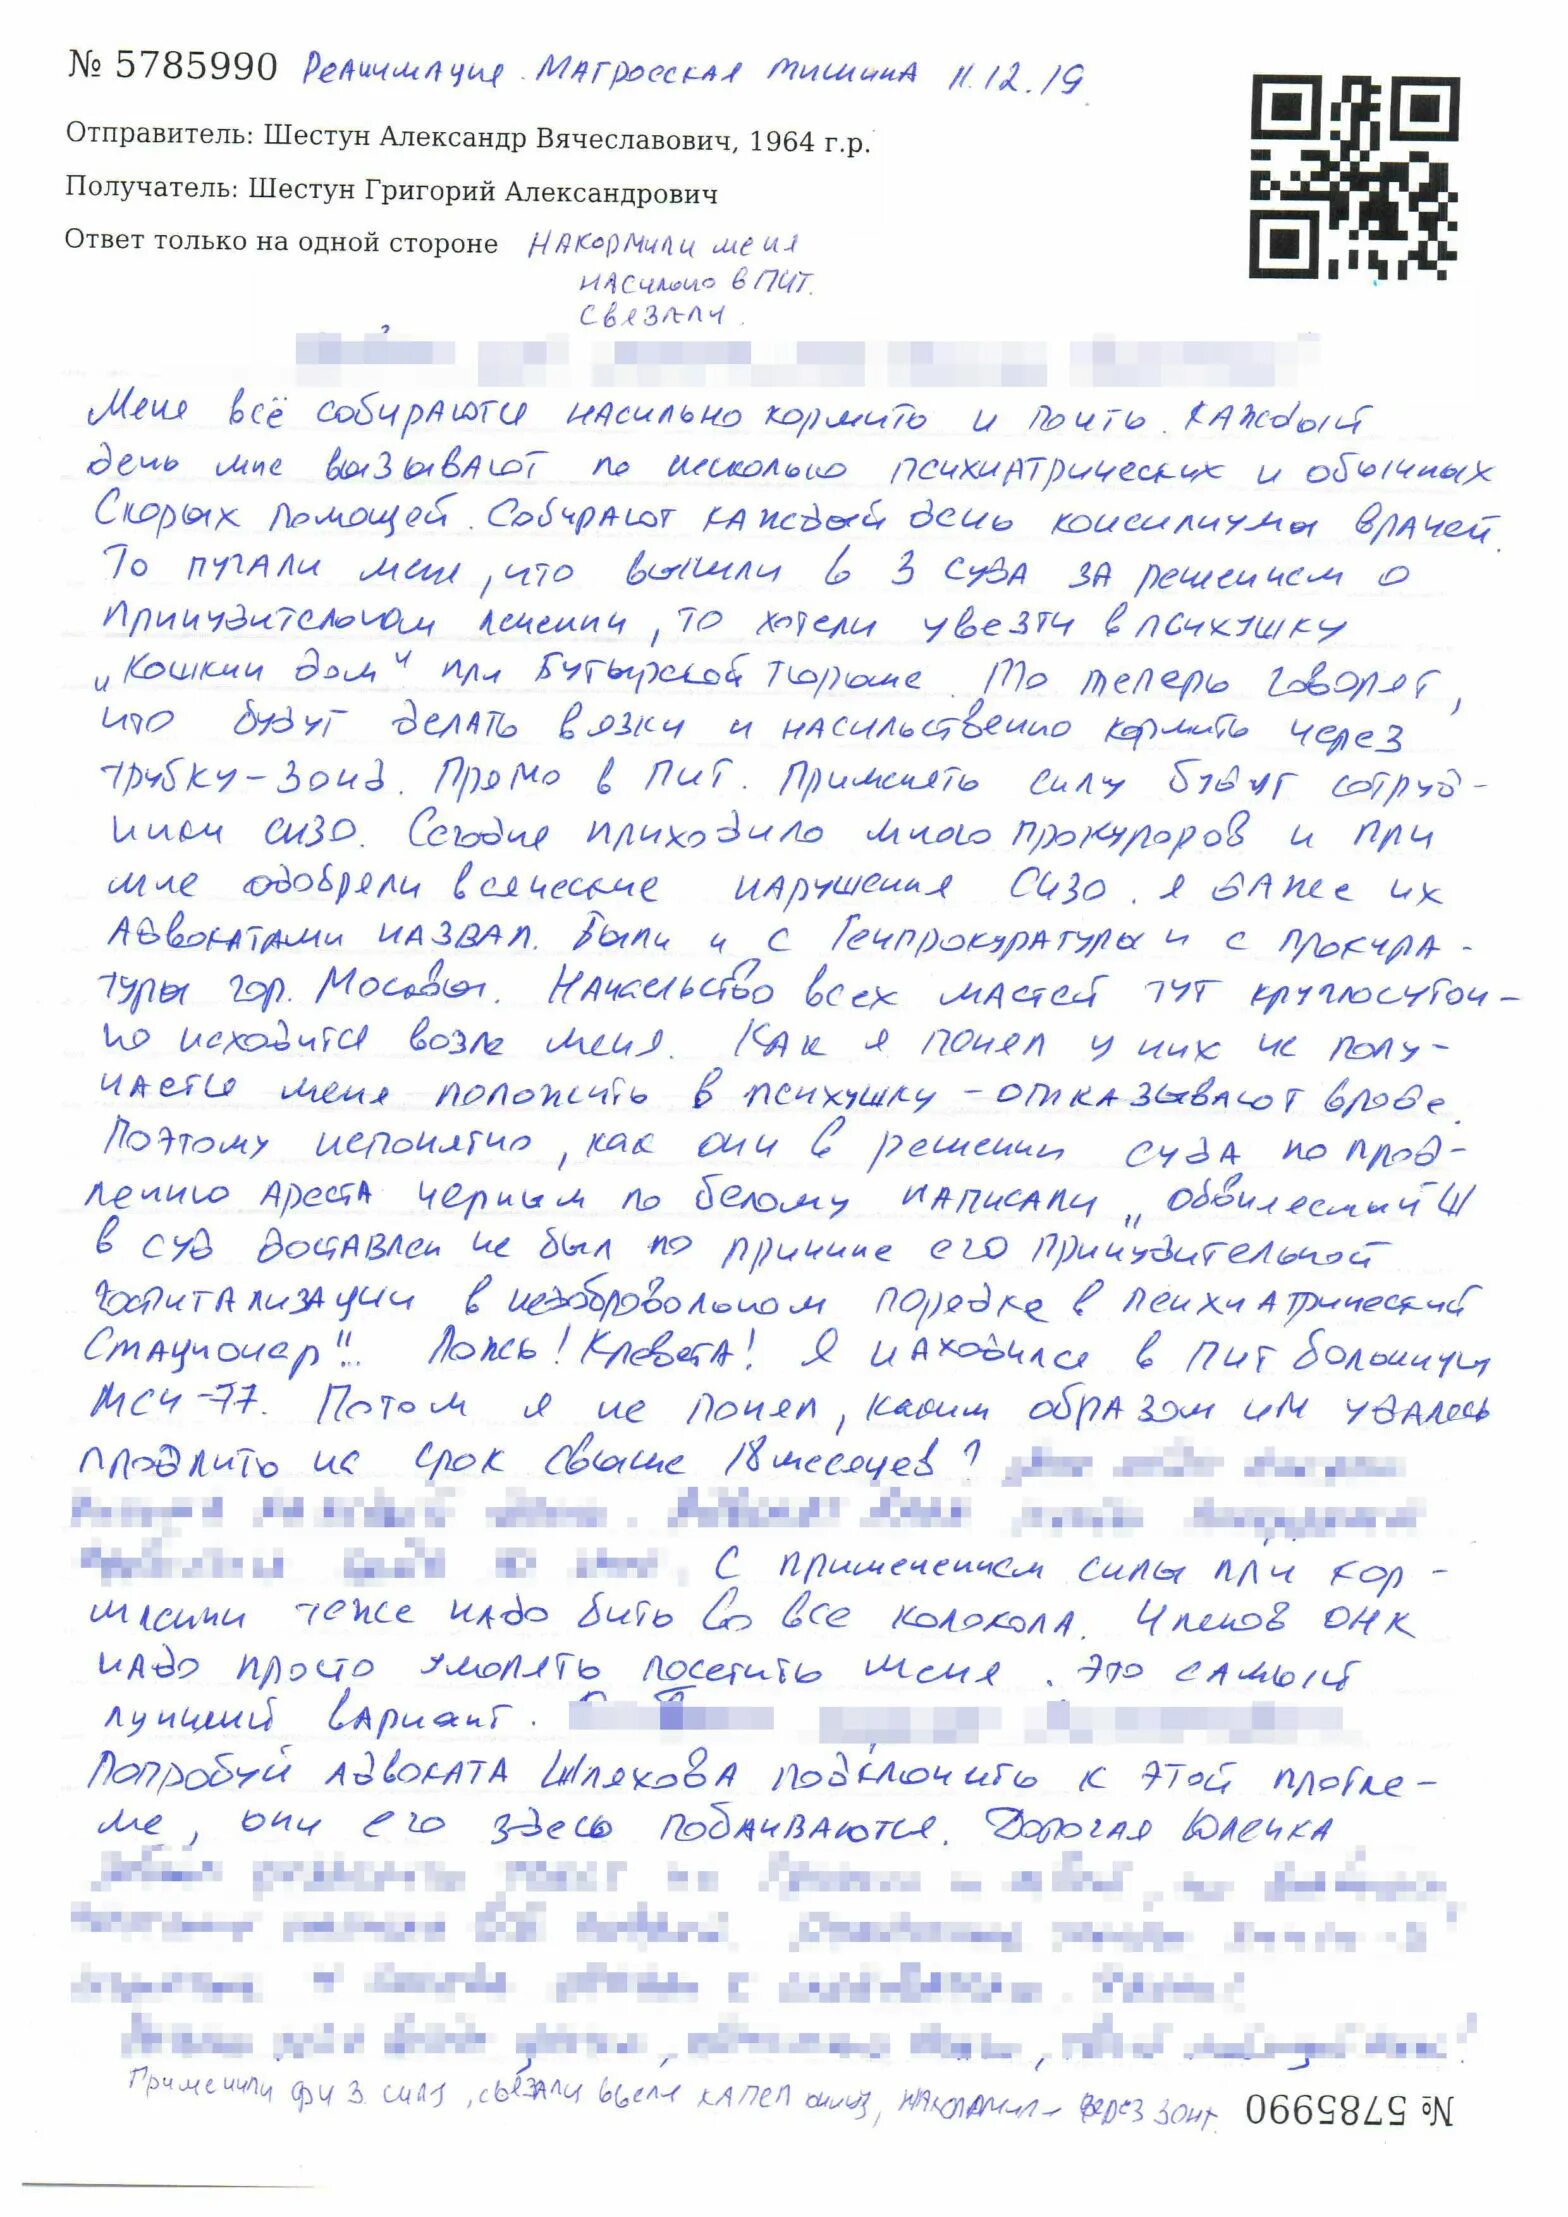 № 5785990 Реанимация. Матросская тишина 11.12.19
Отправитель: Шестун Александр Вячеславович, 1964 г.р.
Получатель: Шестун Григорий Александрович
Ответ только на одной стороне Накормили меня
насильно в ПИТ.
Связали.
Меня всё собираются насильно кормить и поить. Каждый
день мне вызывают по несколько психиатрических и обычных
Скорых помощей. Собирают каждый день консилиумы врачей.
То пугали меня, что вышли в 3 суда за решением о
принудительном лечении, то хотели увезти в психушку
„Кошкин дом“ при Бутырской тюрьме. То теперь говорят,
что будут делать вязки и насильственно кормить через
трубку-зонд. Прямо в ПИТ. Применять силу будут сотруд-
ники СИЗО. Сегодня приходило много прокуроров и при
мне одобряли всяческие нарушения СИЗО. Я даже их
адвокатами назвал. Были и с Генпрокуратуры и с прокура-
туры гор. Москвы. Начальство всех мастей тут круглосуточ-
но исходится возле меня. Как я понял у них не полу-
чается меня положить в психушку - отказывают вроде.
Поэтому непонятно, как они в решении суда по прод-
лению ареста черным по белому написали „обвиняемый Ш
в суд доставлен не был по причине его принудительной
госпитализации в недобровольном порядке в психиатрический
стационар"... Ложь! Клевета! Я находился в ПИТ больницы
МСЧ-77. Потом я не понял, каким образом им удалось
продлить на срок свыше 18 месяцев?
С применением силы при кор-
млении тоже надо бить во все колокола. Членов ОНК
надо просто умолять посетить меня. Это самый
лучший вариант.
Попробуй адвоката Шляхова подключить к этой пробле-
ме, они его здесь побаиваются. Дорогая Юлечка
Применили физ. силу, связали ввели капельницу, накормили через зонт.
№ 5785990